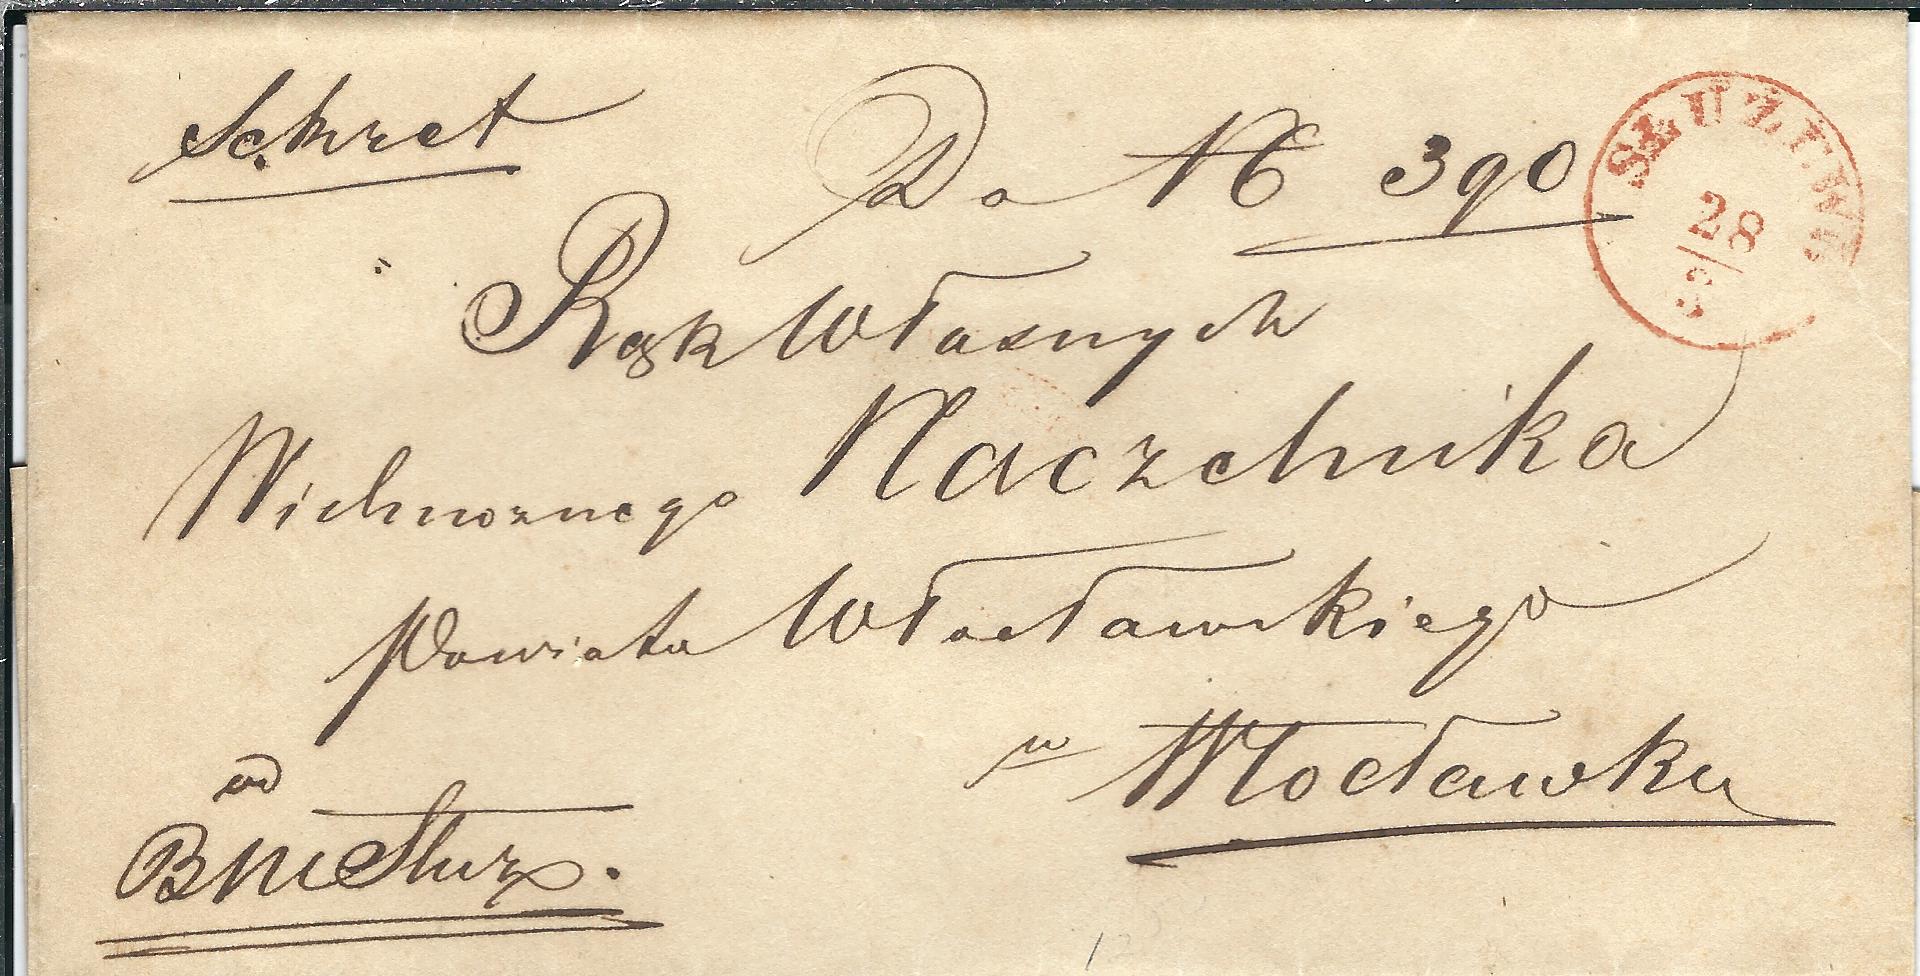 Sekret
Do № 390
SŁUŻEWO
28
3
Rąk Własnych
Wielmożnego Naczelnika
Powiatu Włocławskiego
w Włocławku
od
B M Służ.